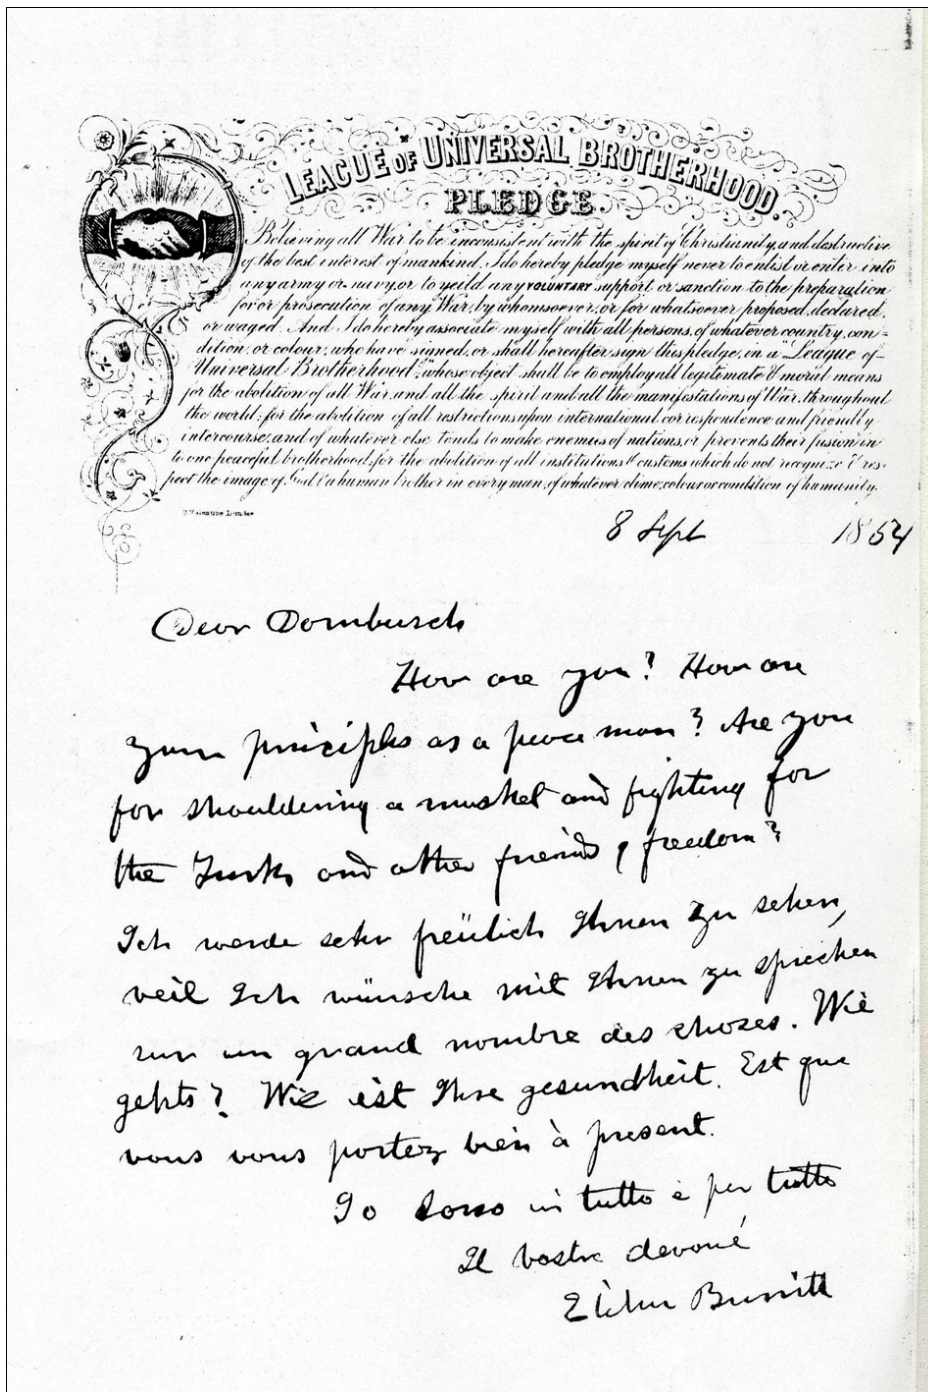 LEAGUE OF UNIVERSAL BROTHERHOOD.
PLEDGE.
Believing all War to be inconsistent with the spirit of Christianity, and destructive
of the best interest of mankind, I do hereby pledge myself never to enlist or enter into
any army or navy, or to yeild any VOLUNTARY support or sanction to the preparation
for or prosecution of any War, by whomsoever, or for whatsoever proposed, declared,
or waged. And I do hereby associate myself with all persons, of whatever country, con-
dition, or colour, who have signed, or shall hereafter sign this pledge, in a "League of
Universal Brotherhood", whose object shall be to employ all legitimate & moral means
for the abolition of all War, and all the spirit and all the manifestations of War, throughout
the world; for the abolition of all restrictions upon international correspondence and friendly
intercourse, and of whatever else tends to make enemies of nations, or prevents their fusion in
to one peaceful brotherhood; for the abolition of all institutions & customs which do not recognize & res-
pect the image of God & a human brother in every man, of whatever clime, colour or condition of humanity.
8 Sept 1854
Dear Dornbusch
How are you? How are
your principles as a peace man? Are you
for shouldering a musket and fighting for
the Turks and other friends of freedom?
Ich werde sehr freülich Ihnen zu sehen,
veil Ich wünsche mit Ihnen zu sprechen
sur un grand nombre des choses. Wie
gehts? Wie ist Ihre gesundheit. Est que
vous vous portez bien à present.
Io sono in tutto è per tutto
Il vostre devoué
Elihu Burritt